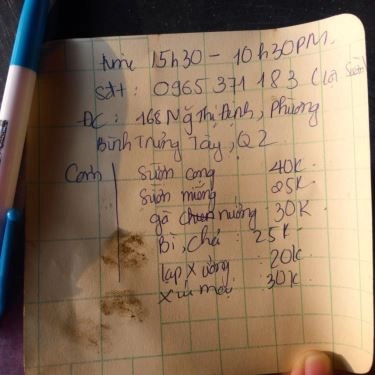 time 15h30 - 10h30PM.
Sđt: 0965 371 183 (Cô Sườn)
ĐC: 168 Ng Thị Định, Phường
Bình Trưng Tây, Q2
Cơm Sườn cọng 40K
Sườn miếng 25K
gà nướng: 30K
Bì, chả : 25K
lạp xưởng: 20K
Xíu mại 30K